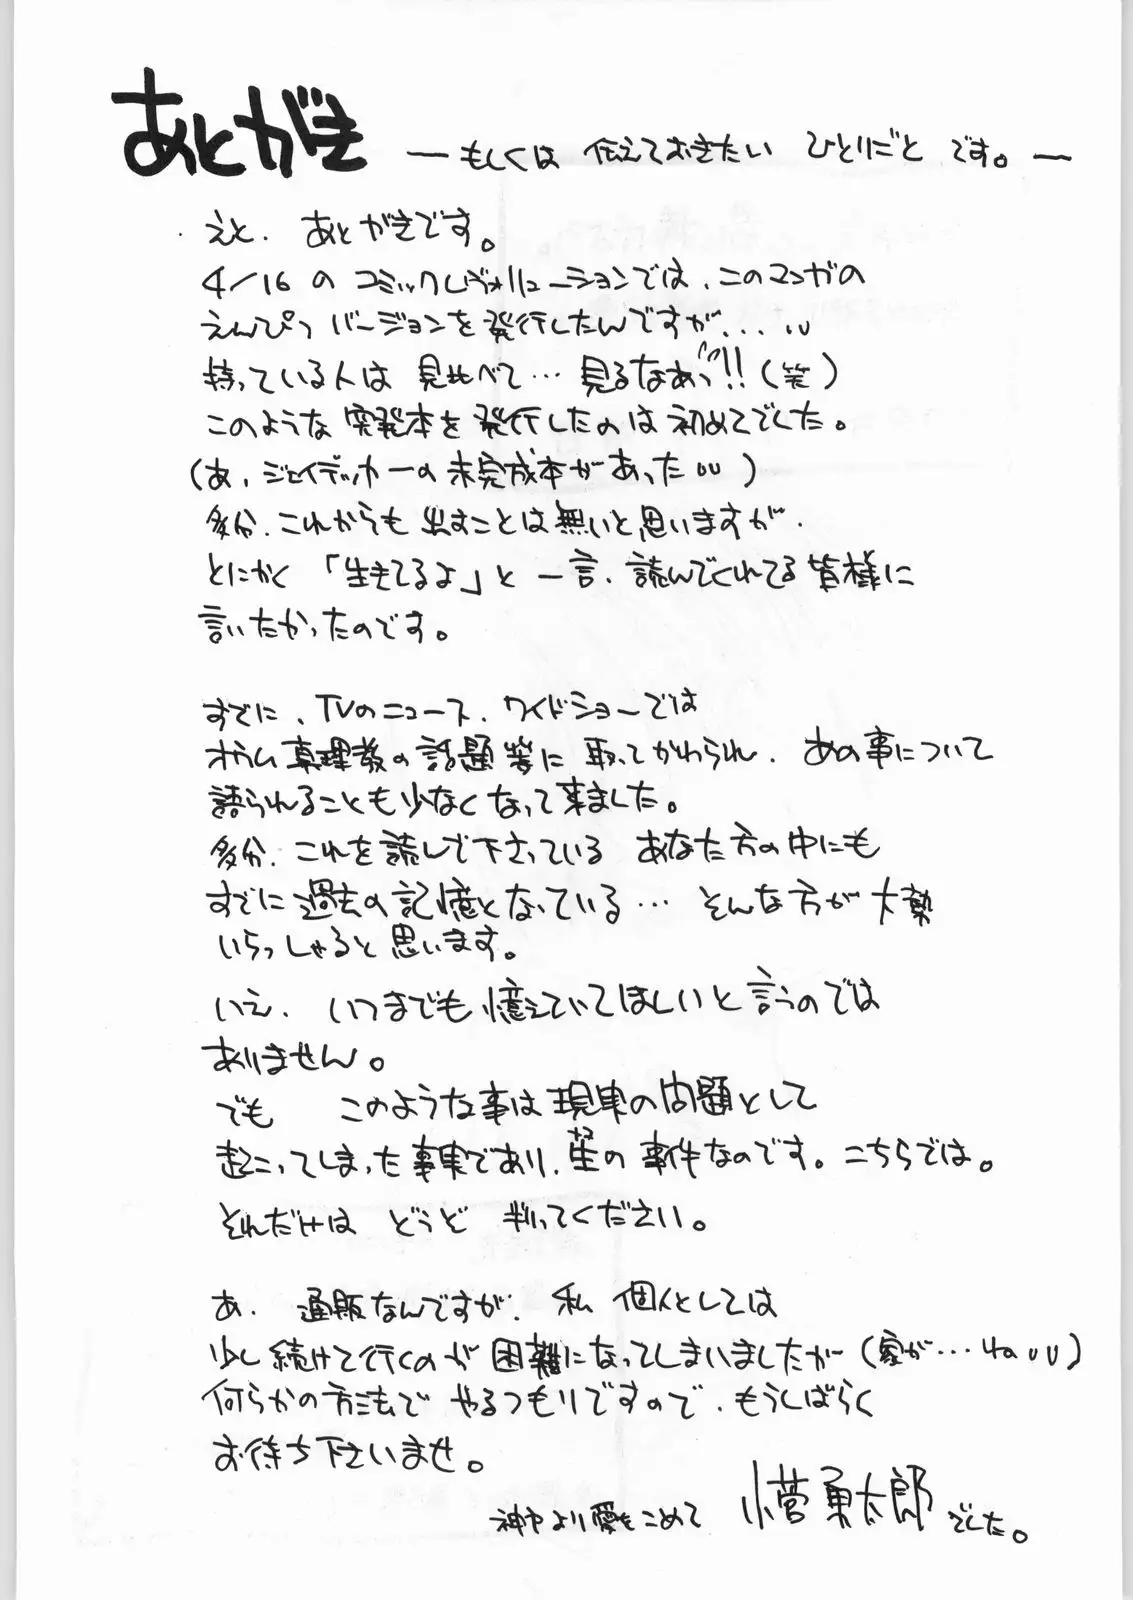 あとがき ―もしくは 伝えておきたい ひとりごと です。―
えと、あとがきです。
4/16 の コミックレヴォリューションでは、このマンガの
えんぴつ バージョンを 発行したんですが、...
持っている人は 見比べて… 見るなあっ!!(笑)
このような 突発本を 発行したのは 初めてでした。
(あ、ジェイデッカーの未完成本があった)
多分、これからも 出すことは無いと思いますが、
とにかく 「生きてるよ」と 一言、読んでくれてる 皆様に
言いたかったのです。
すでに、TVのニュース、ワイドショーでは
オウム真理教の話題等に 取ってかわられ、あの事について
語られることも少なくなって来ました。
多分、これを読んで下さっている あなた方の中にも
すでに過去の記憶となっている… そんな方が 大勢
いらっしゃると思います。
いえ、いつまでも憶えていてほしいと言うのでは
ありません。
でも このような事は現実の問題として
起こってしまった事実であり、生の 事件なのです。こちらでは。
それだけは どうぞ 判ってください。
あ、通販なんですが、私 個人としては
少し続けて行くのが 困難になってしまいましたが(家が…ね)
何らかの方法で やるつもりですので、もうしばらく
お待ち下さいませ。
神戸より愛をこめて 小菅勇太郎でした。